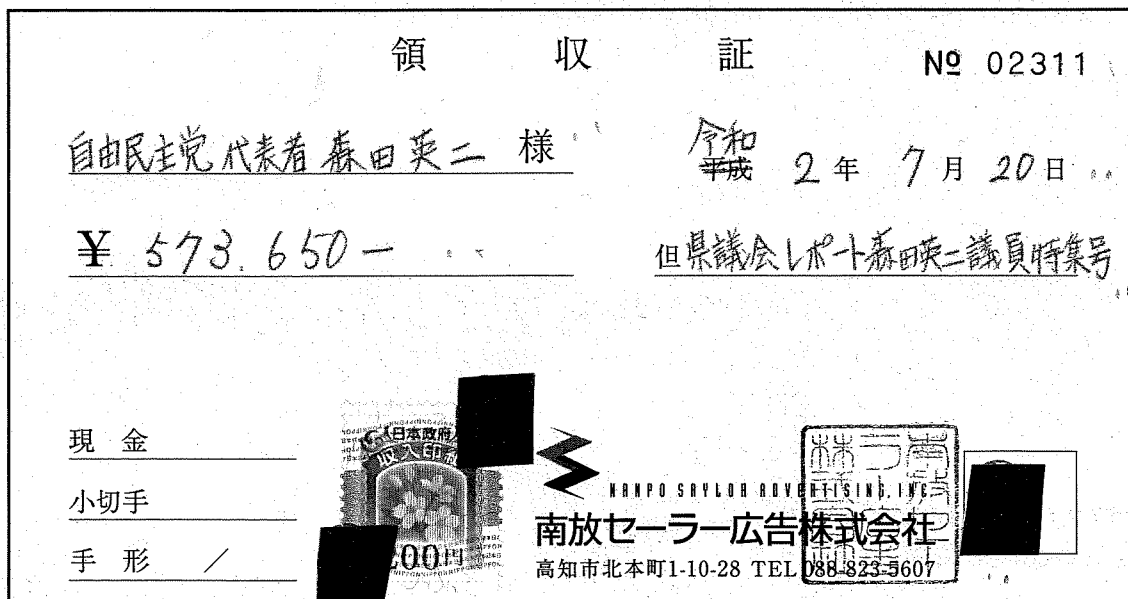 領収証
№ 02311
自由民主党 代表者 森田英二 様
令和
平成 2年 7月 20日
¥ 573.650－
但県議会レポート森田英二議員特集号
現金
小切手
手形 /
日本政府
収入印紙
200円
NANPO SAYLOR ADVERTISING, INC.
南放セーラー広告株式会社
高知市北本町1-10-28 TEL 088-823-5607